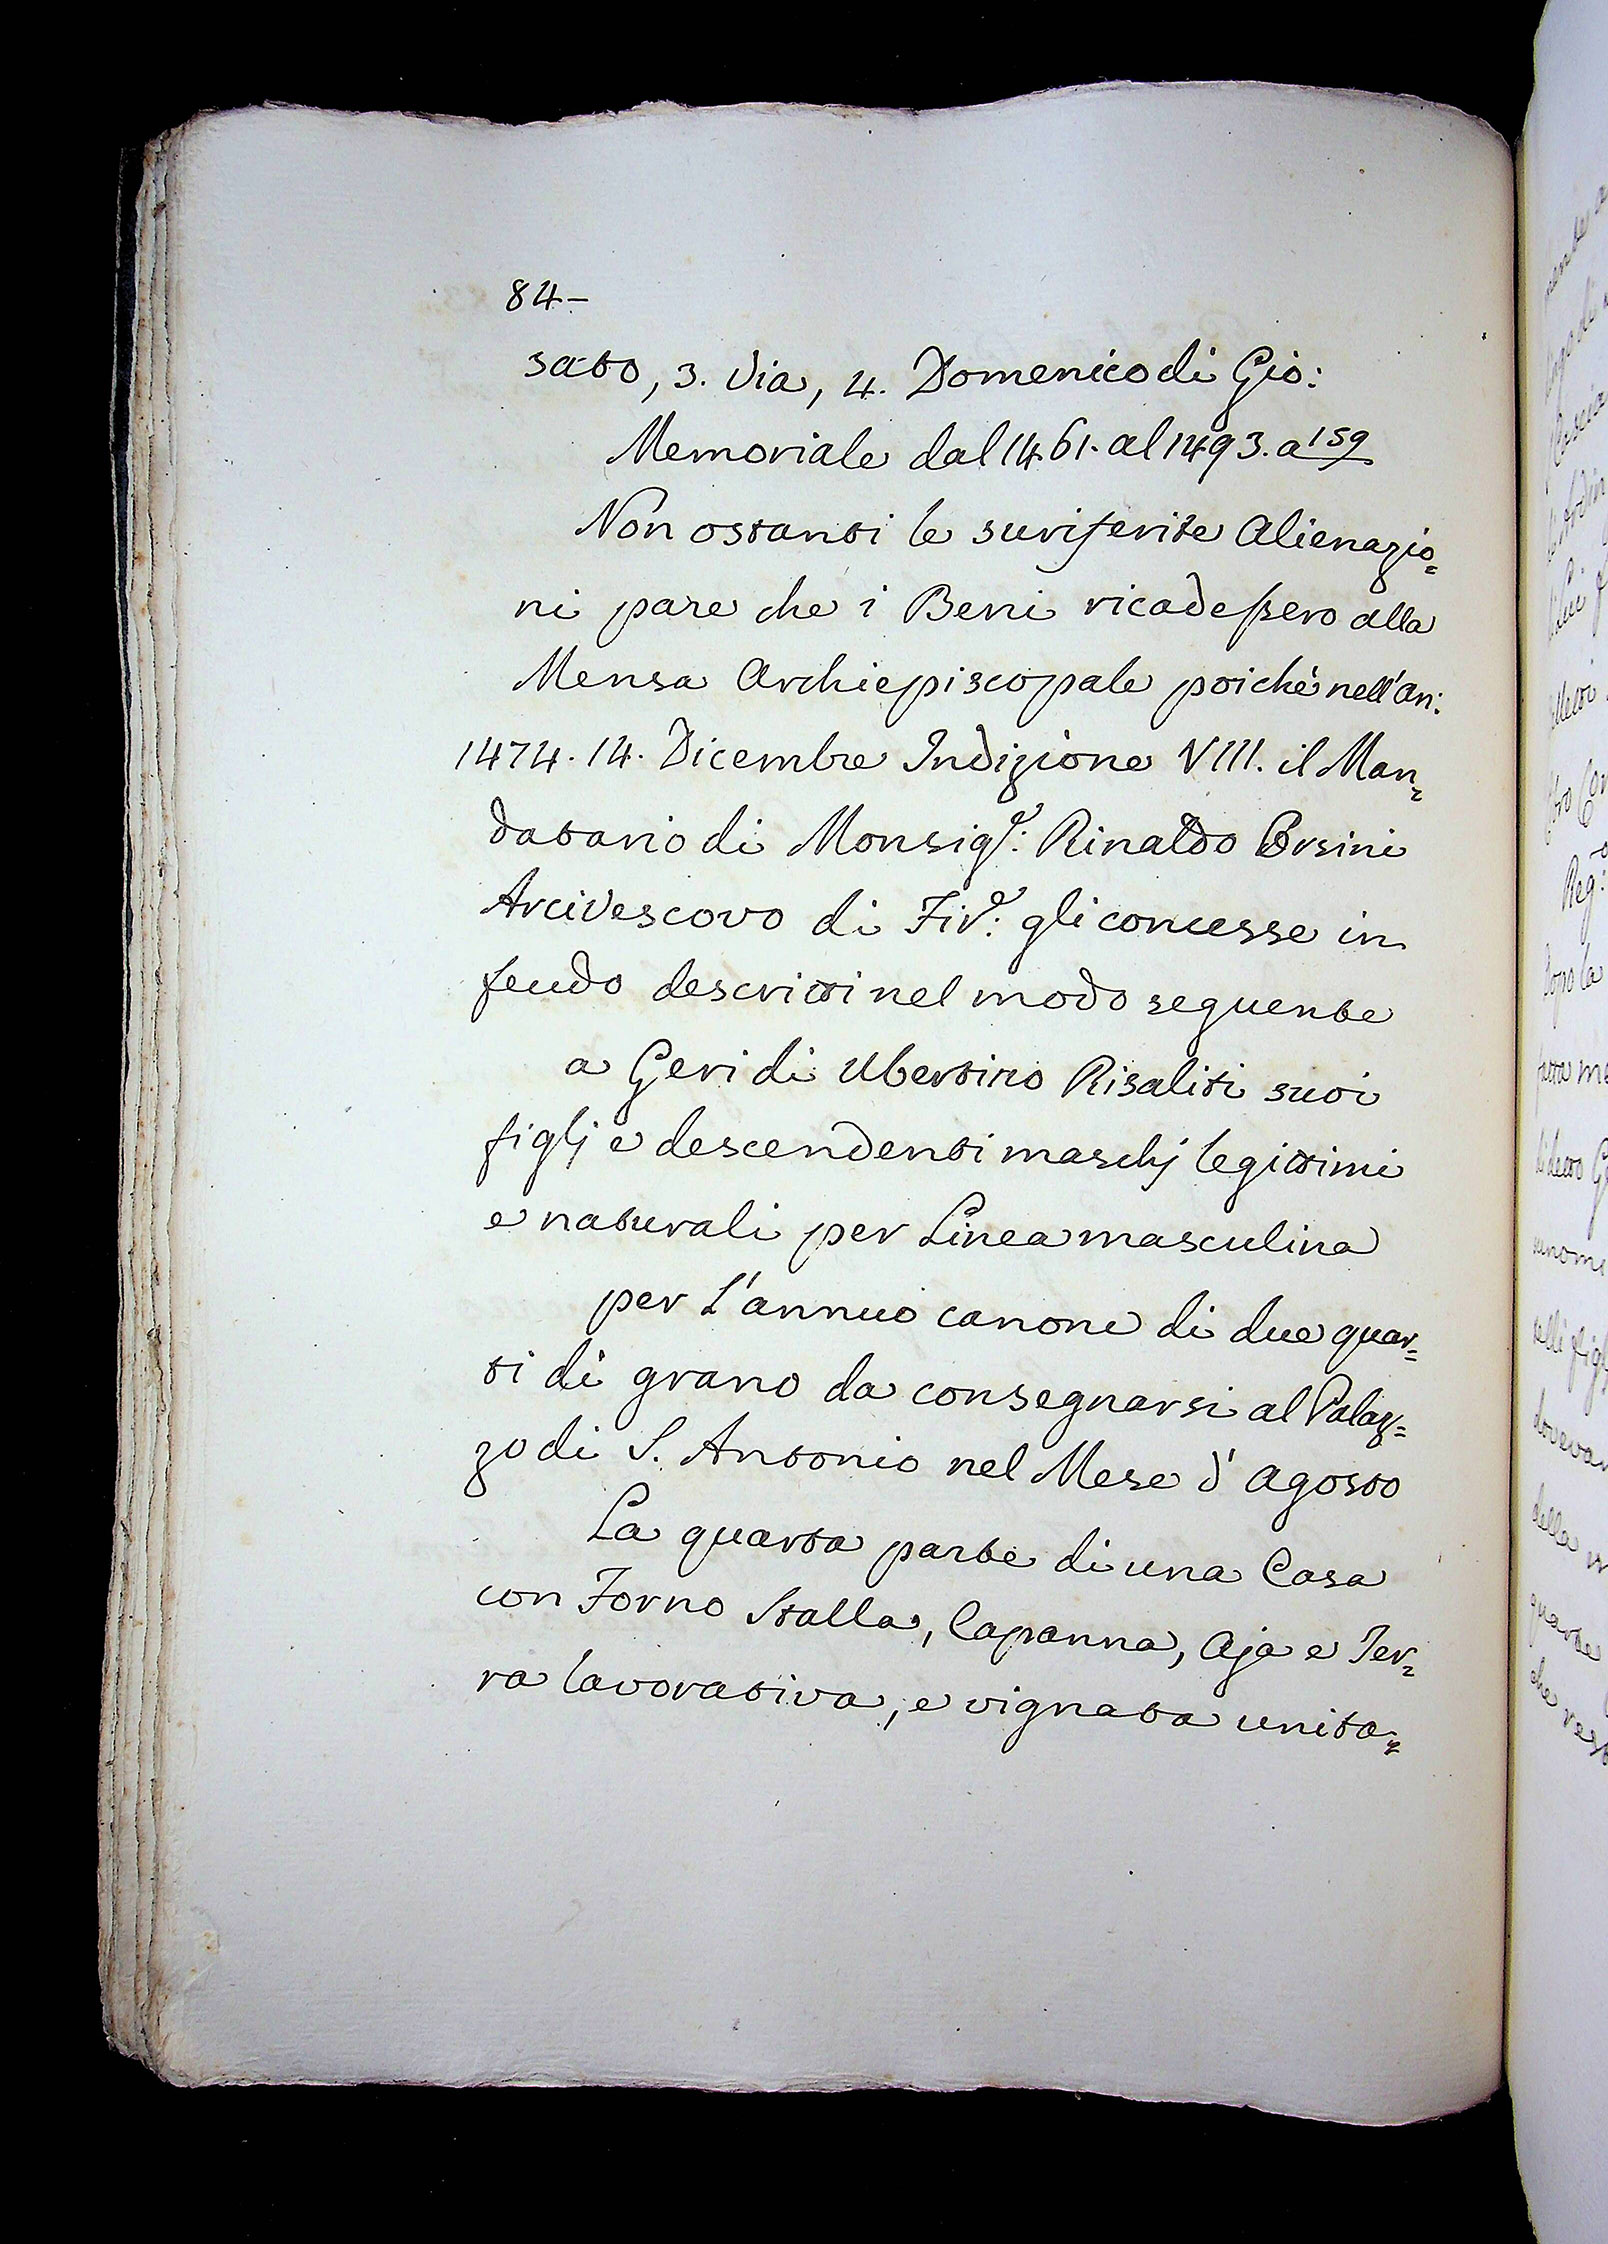 84-
sato, 3. Via, 4. Domenico di Gio:
Memoriale dal 1461. al 1493. a 159
Non ostanti le suriferite Alienazio=
ni pare che i Beni ricadeßero alla
Mensa Archiepiscopale poichè nell'An:
1474. 14. Dicembre Indizione VIII. il Man=
datario di Monsig.e: Rinaldo Orsini
Arcivescovo di Fir.e: gli concesse in
feudo descritti nel modo seguente
a Geri di Ubertino Risaliti suoi
figlj e descendenti maschj legittimi
e naturali per Linea masculina
per l'annuo canone di due quar=
ti di grano da consegnarsi al Palaz=
zo di S. Antonio nel Mese d'Agosto
La quarta parte di una Casa
con Forno Stalla, Capanna, Aja e Ter=
ra lavorativa, e vignata unita=